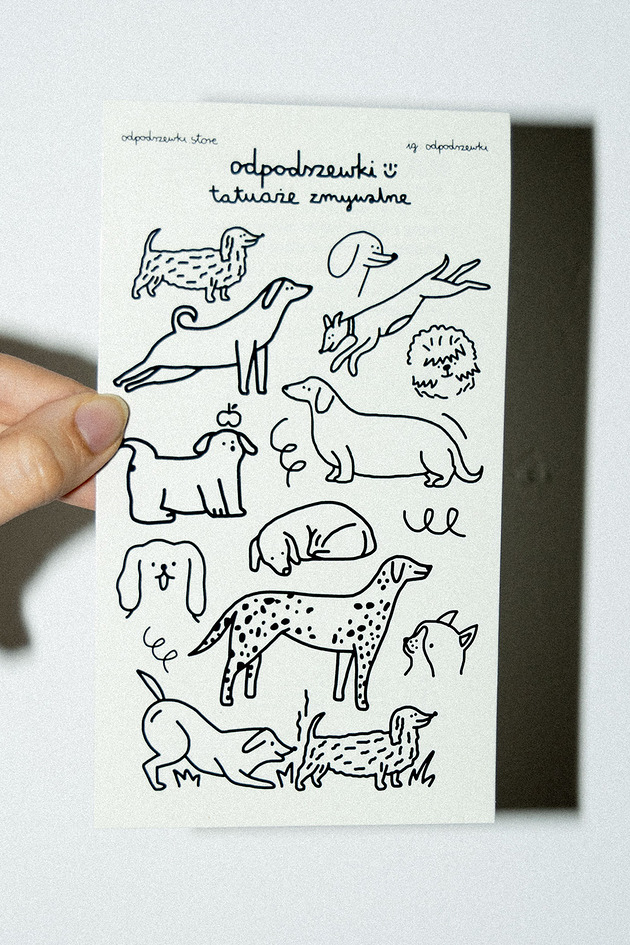 odpodszewki store
ig odpodszewki
odpodszewki
tatuaże zmywalne